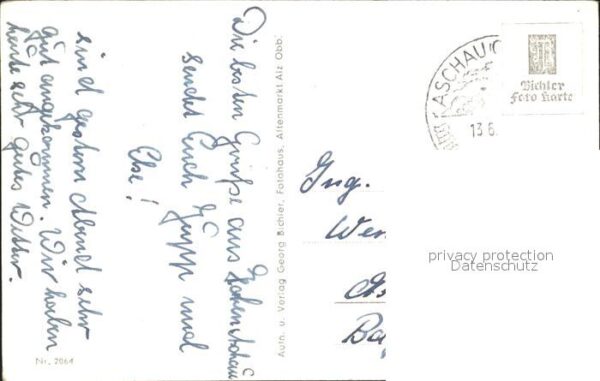 Die besten Grüße aus Hohenaschau
sendet Euch Huppp und
Else!
sind gestern Abend sehr
gut angekommen. Wir haben
heute sehr gutes Wetter.
Nr. 2064
Aufn. u. Verlag Georg Bichler, Fotohaus, Altenmarkt Alz Obb.
ASCHAU
13.6.
Bichler
Foto Karte
Ing.
privacy protection
Datenschutz